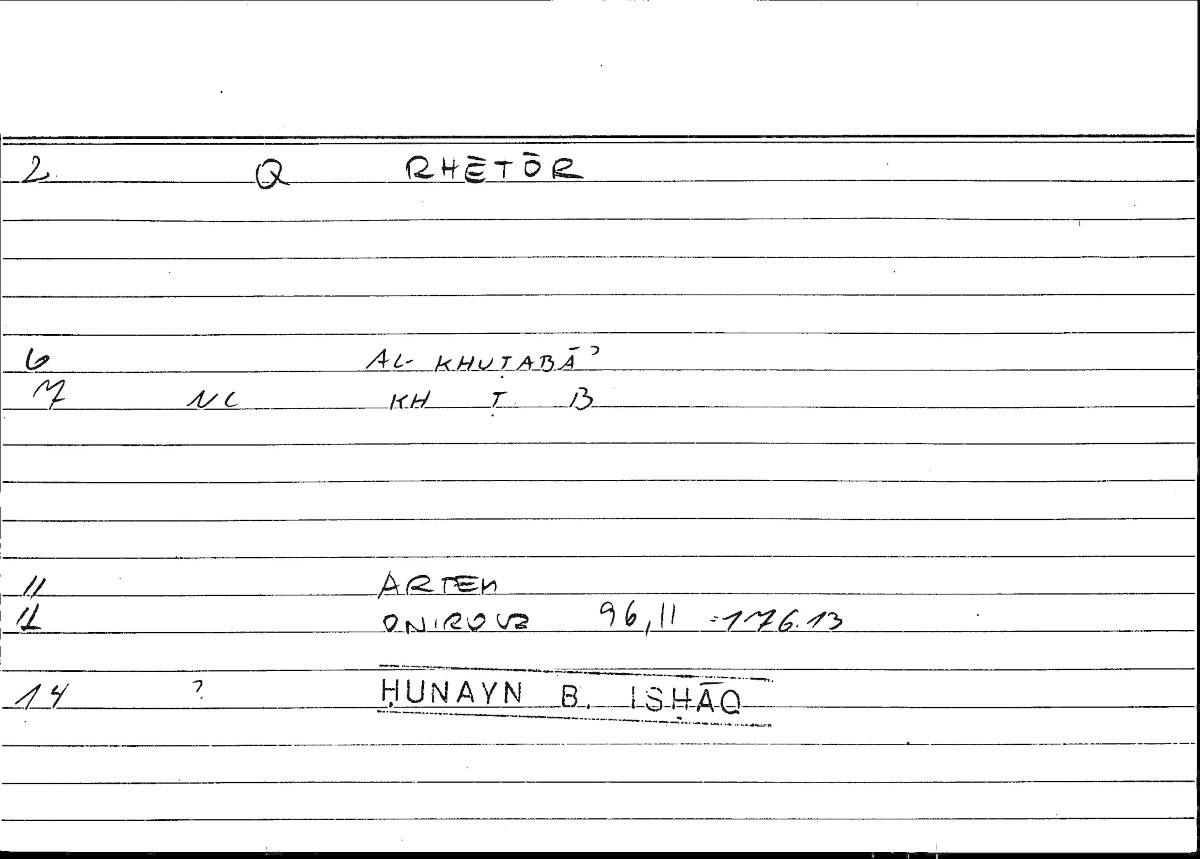 2 Q RHĒTŌR
6 AL-KHUṬABĀʾ
7 NC KH Ṭ B
11 ARTEM
12 ONIROCR 96,11 = 176.13
14 ? ḤUNAYN B. ISḤĀQ